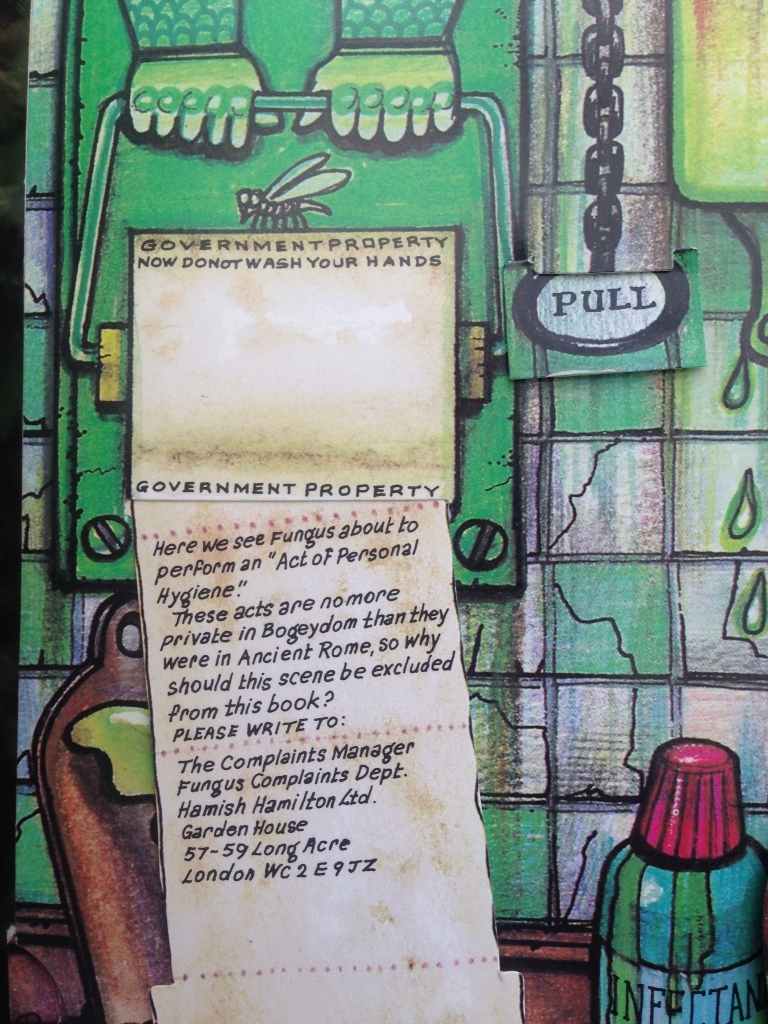 GOVERNMENT PROPERTY
NOW DO NOT WASH YOUR HANDS
PULL
GOVERNMENT PROPERTY
Here we see Fungus about to
perform an "Act of Personal
Hygiene."
These acts are no more
private in Bogeydom than they
were in Ancient Rome, so why
should this scene be excluded
from this book?
PLEASE WRITE TO:
The Complaints Manager
Fungus Complaints Dept.
Hamish Hamilton Ltd.
Garden House
57-59 Long Acre
London WC2E 9JZ
INFECTAN